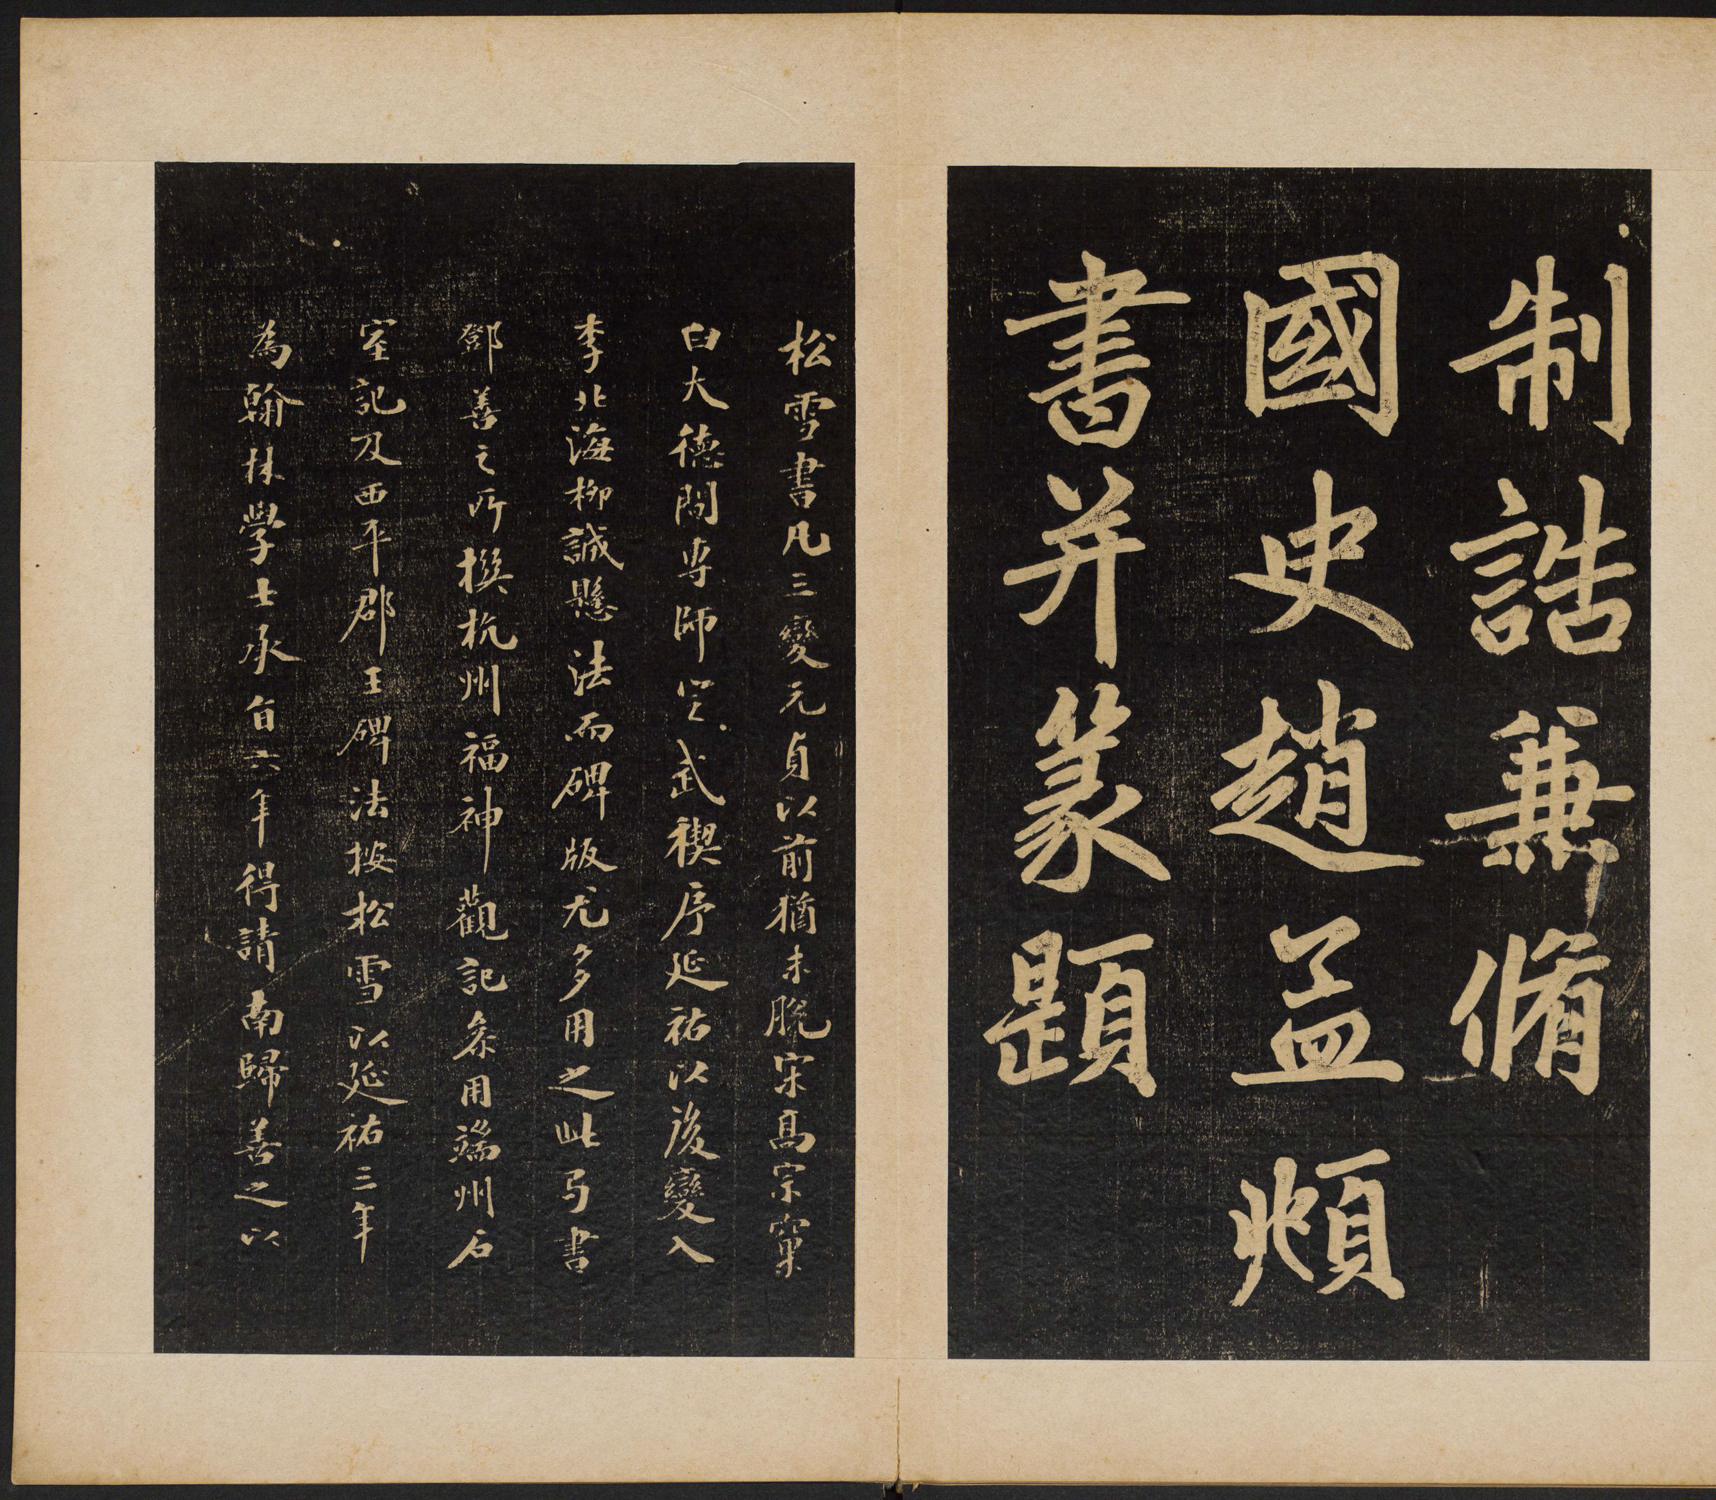 制誥兼脩
國史趙孟頫
書并篆題
松雪書凡三變元貞以前猶未脫宋高宗窠
臼大德間專師定武禊序延祐以後變入
李北海柳誠懸法而碑版尤多用之此與書
鄧善之所撰杭州福神觀記叅用端州石
室記及西平郡王碑法按松雪以延祐三年
為翰林學士承旨六年得請南歸善之以